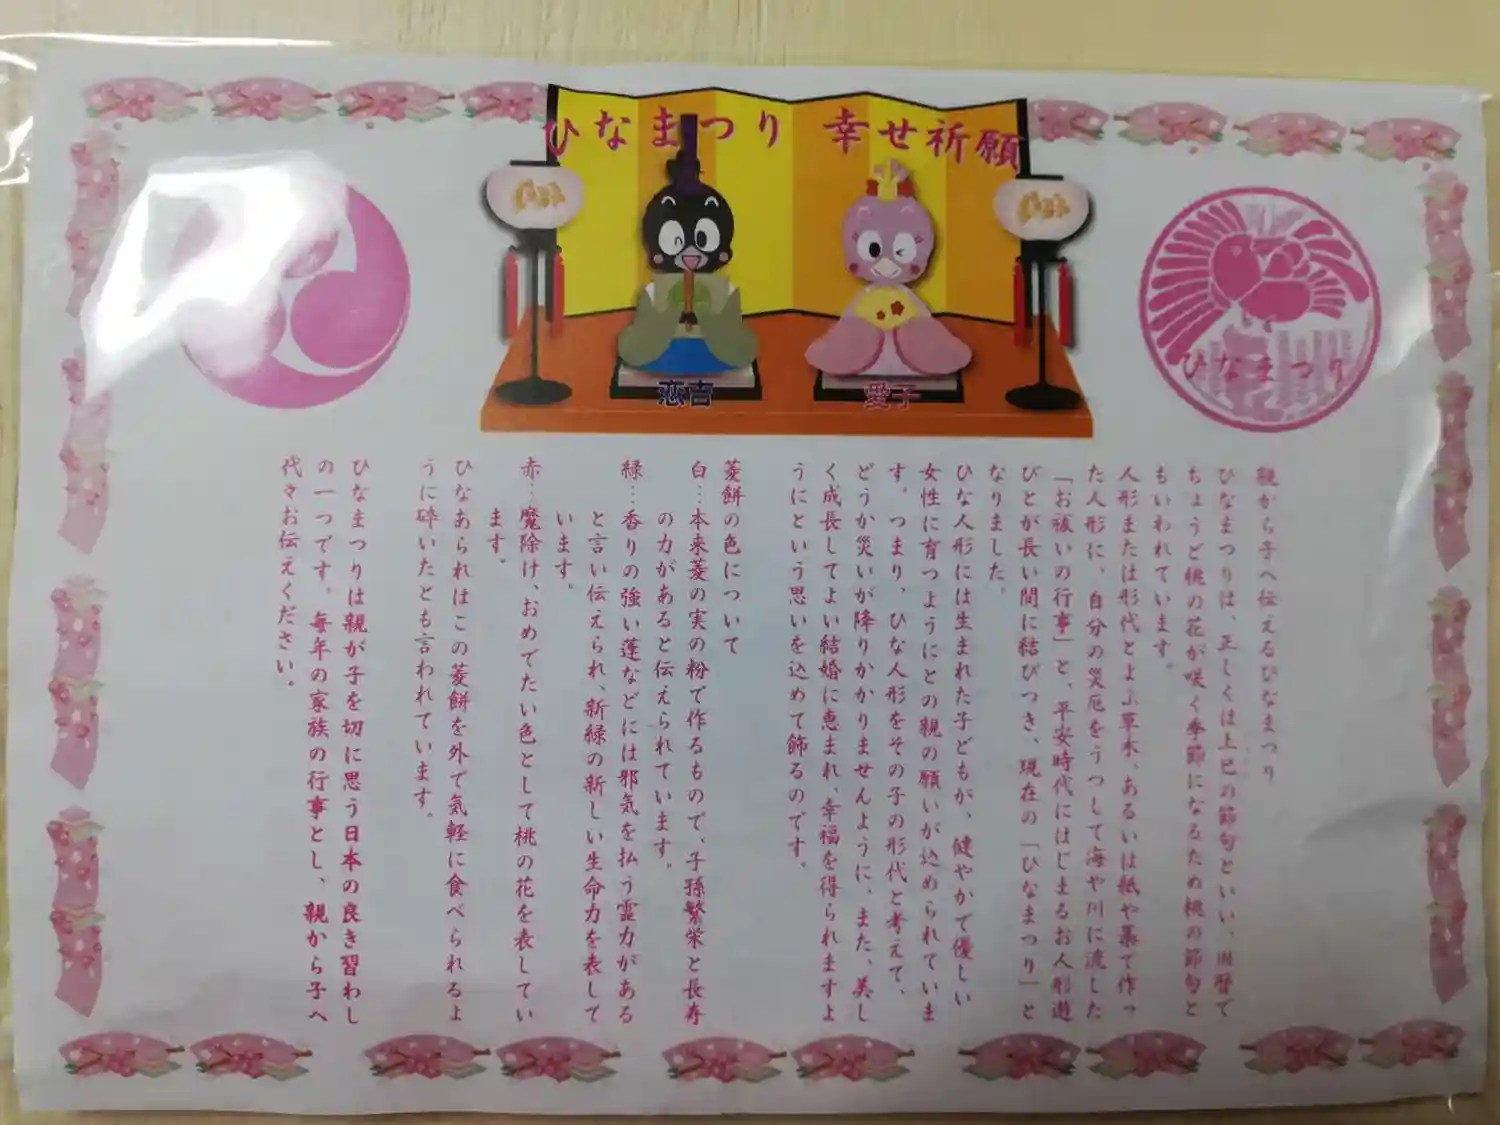 ひなまつり 幸せ祈願
恋吉
愛子
ひなまつり
親から子へ伝えるひなまつり
ひなまつりは、正しくは上巳の節句といい、旧暦で
ちょうど桃の花が咲く季節になるため桃の節句と
もいわれています。
人形または形代とよぶ草木、あるいは紙や藁で作っ
た人形に、自分の災厄をうつして海や川に流した
「お祓いの行事」と、平安時代にはじまるお人形遊
びとが長い間に結びつき、現在の「ひなまつり」と
なりました。
ひな人形には生まれた子どもが、健やかで優しい
女性に育つようにとの親の願いが込められていま
す。つまり、ひな人形をその子の形代と考えて、
どうか災いが降りかかりませんように、また、美し
く成長してよい結婚に恵まれ、幸福を得られますよ
うにという思いを込めて飾るのです。
菱餅の色について
白…本来菱の実の粉で作るもので、子孫繁栄と長寿
の力があると伝えられています。
緑…香りの強い蓬などには邪気を払う霊力がある
と言い伝えられ、新緑の新しい生命力を表して
います。
赤…魔除け、おめでたい色として桃の花を表してい
ます。
ひなあられはこの菱餅を外で気軽に食べられるよ
うに砕いたとも言われています。
ひなまつりは親が子を切に思う日本の良き習わし
の一つです。毎年の家族の行事とし、親から子へ
代々お伝えください。